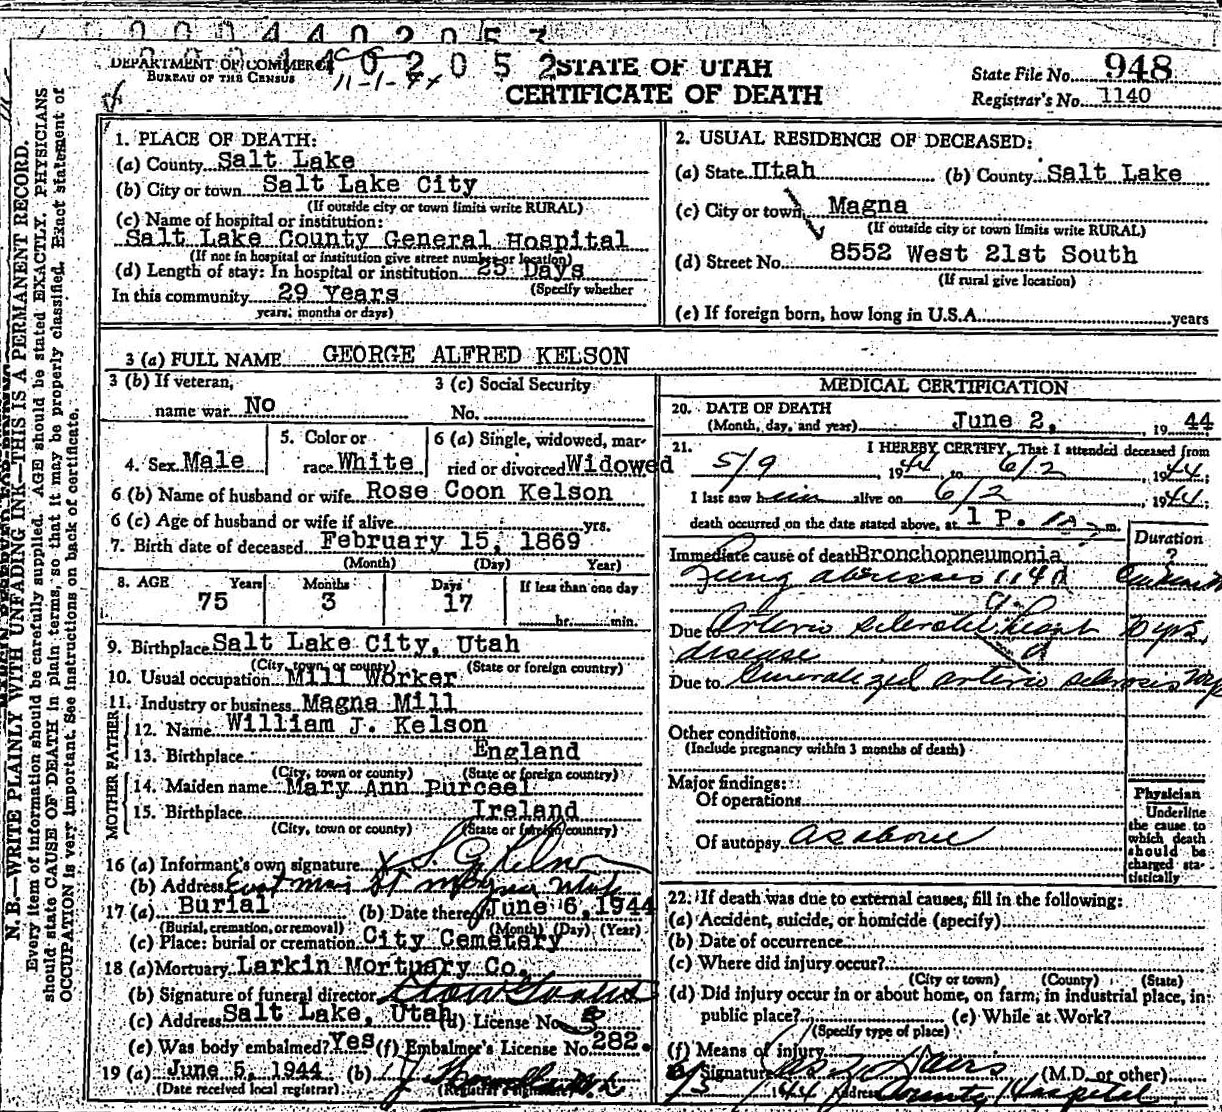 0 0 0 4 4 0 2 0 5 3
4 0 2 0 5 2
DEPARTMENT OF COMMERCE
BUREAU OF THE CENSUS
STATE OF UTAH
CERTIFICATE OF DEATH
State File No. 948
Registrar's No. 1140
N. B.—WRITE PLAINLY WITH UNFADING INK—THIS IS A PERMANENT RECORD.
Every item of information should be carefully supplied. AGE should be stated EXACTLY. PHYSICIANS
should state CAUSE OF DEATH in plain terms, so that it may be properly classified. Exact statement of
OCCUPATION is very important. See instructions on back of certificate.
1. PLACE OF DEATH:
(a) County Salt Lake
(b) City or town Salt Lake City
(If outside city or town limits write RURAL)
(c) Name of hospital or institution:
Salt Lake County General Hospital
(If not in hospital or institution give street number or location)
(d) Length of stay: In hospital or institution 25 Days
(Specify whether
In this community 29 Years
years, months or days)
2. USUAL RESIDENCE OF DECEASED:
(a) State Utah (b) County Salt Lake
(c) City or town Magna
(If outside city or town limits write RURAL)
(d) Street No. 8552 West 21st South
(If rural give location)
(e) If foreign born, how long in U.S.A. years
3 (a) FULL NAME GEORGE ALFRED KELSON
3 (b) If veteran, name war No
3 (c) Social Security No.
4. Sex Male
5. Color or race White
6 (a) Single, widowed, married or divorced Widowed
6 (b) Name of husband or wife Rose Coon Kelson
6 (c) Age of husband or wife if alive yrs.
7. Birth date of deceased February 15, 1869
(Month) (Day) Year)
8. AGE Years Months Days If less than one day
75 3 17 hr. min.
9. Birthplace Salt Lake City, Utah
(City, town, or county) (State or foreign country)
10. Usual occupation Mill Worker
11. Industry or business Magna Mill
FATHER
12. Name William J. Kelson
13. Birthplace England
(City, town or county) (State or foreign country)
MOTHER
14. Maiden name Mary Ann Purceel
15. Birthplace Ireland
(City, town or county) (State or foreign country)
16 (a) Informant's own signature Kelson
(b) Address East Main St Magna Utah
17 (a) Burial (b) Date thereof June 6, 1944
(Burial, cremation, or removal) (Month) (Day) (Year)
(c) Place: burial or cremation City Cemetery
18 (a) Mortuary Larkin Mortuary Co.
(b) Signature of funeral director
(c) Address Salt Lake, Utah (d) License No.
(e) Was body embalmed? Yes (f) Embalmer's License No. 282.
19 (a) June 5, 1944 (b)
(Date received local registrar) (Registrar's signature)
MEDICAL CERTIFICATION
20. DATE OF DEATH
(Month, day, and year) June 2, 19 44
21. I HEREBY CERTIFY, That I attended deceased from
5/9 1944 to 6/2 1944;
I last saw him alive on 6/2 1944;
death occurred on the date stated above, at 1 P. m.
Duration
Immediate cause of death Bronchopneumonia ?
Lung abscesses 114d
Due to Arterio sclerotic heart 10 yrs.
disease
Due to Generalized arterio sclerosis
Other conditions
(Include pregnancy within 3 months of death)
Major findings:
Of operations
Of autopsy as above
Physician
Underline
the cause to
which death
should be
charged sta-
tistically
22. If death was due to external causes, fill in the following:
(a) Accident, suicide, or homicide (specify)
(b) Date of occurrence
(c) Where did injury occur?
(City or town) (County) (State)
(d) Did injury occur in or about home, on farm, in industrial place, in
public place? (e) While at Work?
(Specify type of place)
(f) Means of injury
Signature Davis (M.D. or other)
44 Address County Hospital